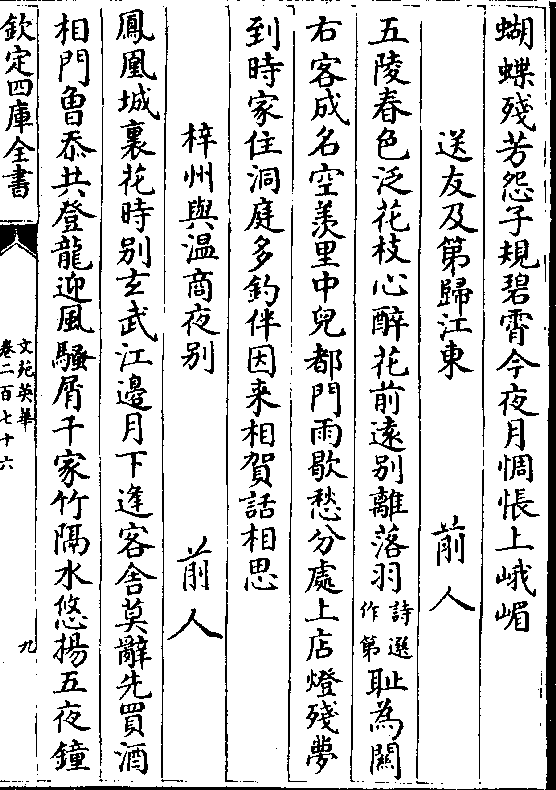 蝴蝶殘芳怨子規碧霄今夜月惆悵上峨嵋
送友及第歸江東 前人
五陵春色泛花枝心醉花前遠别離落羽詩選作第恥為關
右客成名空羨里中兒都門雨歇愁分處上店燈殘夢
到時家住洞庭多釣伴因来相賀話相思
梓州與温商夜别 前人
鳳凰城裏花時别玄武江邊月下逢客舍莫辭先買酒
相門曽忝共登龍迎風騷屑千家竹隔水悠揚五夜鐘
欽定四庫全書
文苑英華
卷二百七十六
九